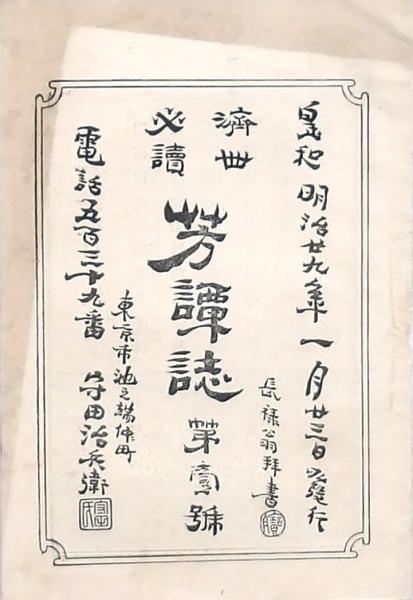 皇和明治廿九年一月廿三日發行
濟世
必讀
芳譚誌 第壹號
長祿翁拜書
東京市池之端仲町
電話五百三十九番 守田治兵衛